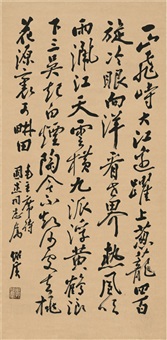 一山飛峙大江邊躍上蔥蘢四百
旋冷眼向洋看世界熱風吹
雨灑江天雲橫九派浮黃鶴浪
下三吳起白煙陶令不知何處去桃
花源裏可畊田
毛主席詩
同志屬